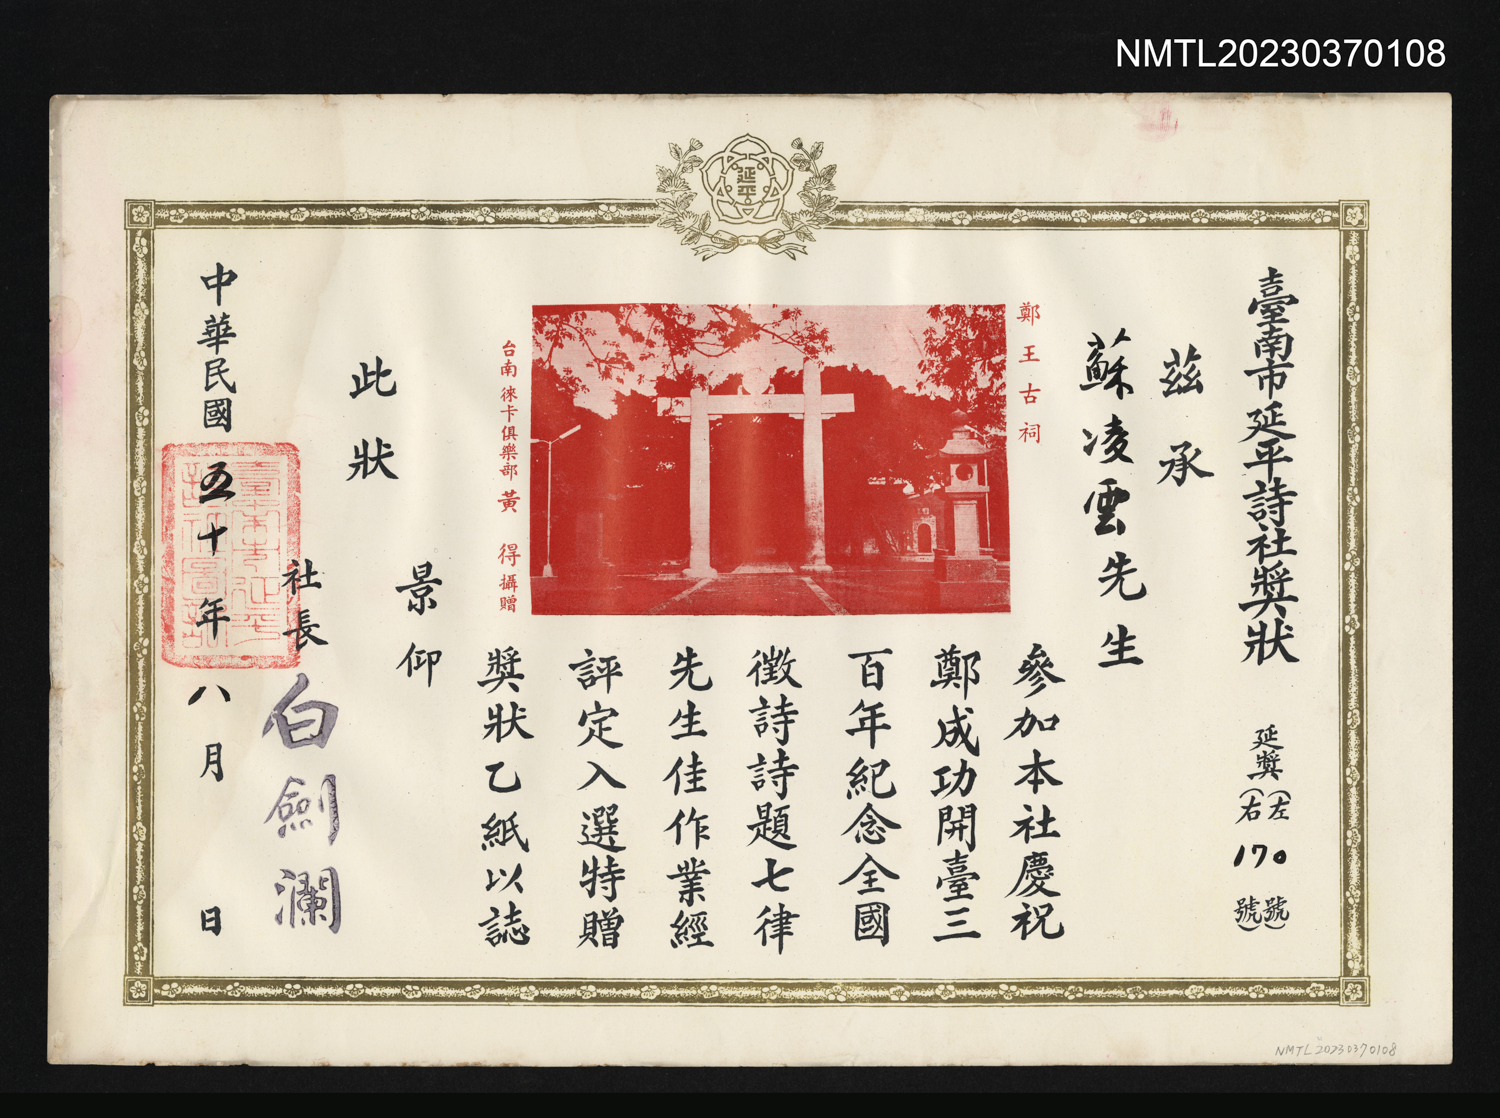 NMTL20230370108
延平
臺南市延平詩社獎狀
延獎(左右)170號
茲承
蘇凌雲先生
參加本社慶祝
鄭成功開臺三
百年紀念全國
徵詩詩題七律
先生佳作業經
評定入選特贈
獎狀乙紙以誌
景仰
此狀
鄭王古祠
台南徠卡俱樂部 黃得攝贈
社長 白劍瀾
中華民國五十年八月 日
NMTL20230370108